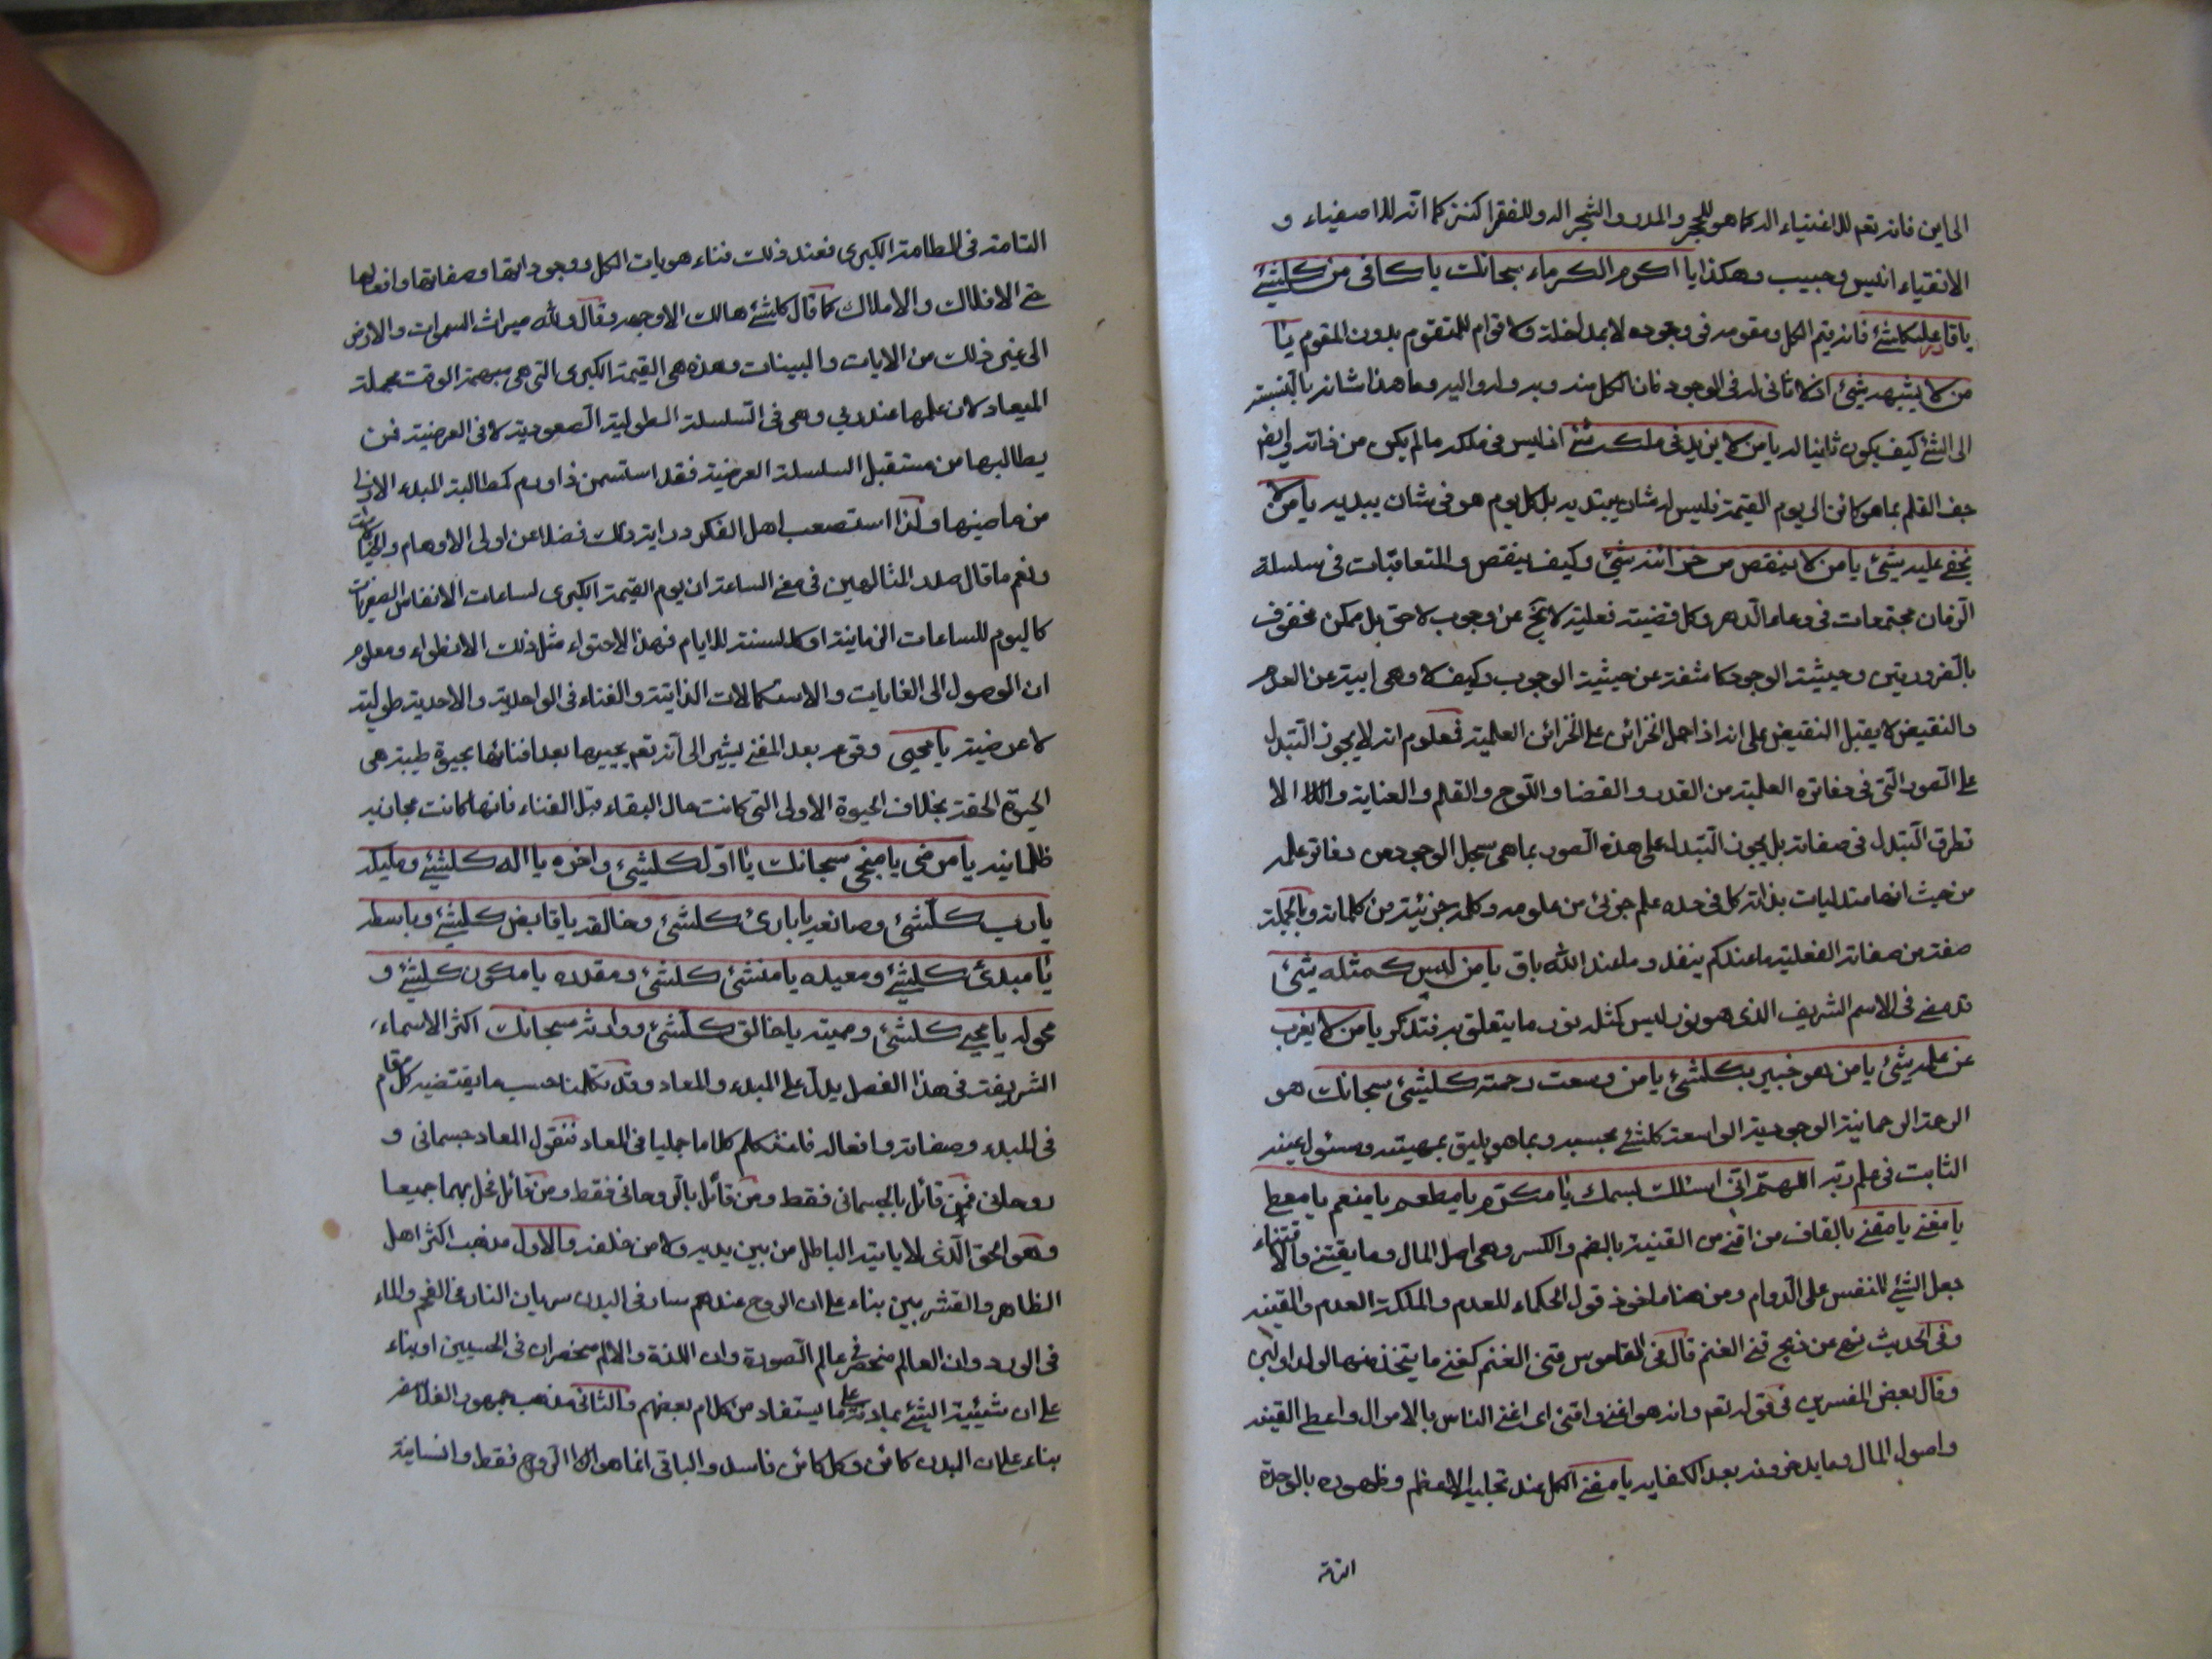 الى اين فانه تعم للاغنياء اله كما هو للحجر والمدر والشجر اله وللفقرا كنز كما انه للاصفياء و
الاتقياء انيس وحبيب وهكذا يا اكرم الكرماء سبحانك يا كافى من كلشئ
يا قائم كلشئ فانه يقيم الكل ومقومه فى وجوده لا بمداخلة ولا قوام للمتقوم بدون المقوم يا
من لا يشبهه شئ اذ لا ثانى له فى الوجود فان الكل منه وبه وله واليه وما هذا شانه بالنسبة
الى الشئ كيف يكون ثانيا له يا من لا يزيد فى ملكه شئ اذ ليس فى ملكه ما لم يكن من ذاته وايض
جف القلم بما هو كائن الى يوم القيمة فليس له شان يبتديه بل كل يوم هو فى شان يبديه يا من لا
يخفى عليه شئ يا من لا ينقص من خزائنه شئ وكيف ينقص والمتعاقبات فى سلسلة
الزمان مجتمعات فى وعاء الدهر وكل قضية فعلية لا تخ عن وجوب لاحق بل ممكن محفوف
بالضرورتين وحيثية الوجود كاشفة عن حيثية الوجوب وكيف لا وهى ابية عن العدم
والنقيض لا يقبل النقيض على انه اذا حمل الخزائن على الخزائن العلمية فمعلوم انه لا يجوز التبدل
على الصور التى فى دفاتره العلمية من القدر والقضا واللوح والقلم والعناية والا لا
تطرق التبدل فى صفاته بل يجوز التبدل على هذه الصور بما هى سجل الوجود من دفاتر علمه
من حيث انها متدليات بذاته كل فى حده علم جزئى من علومه وكلمة جزئية من كلماته وبالجملة
صفة من صفاته الفعلية ما عندكم ينفد وما عند الله باق يا من ليس كمثله شئ
قد مضى فى الاسم الشريف الذى هو نور ليس كمثله نور ما يتعلق به فتذكر يا من لا يغرب
عن علمه شئ يا من هو خبير بكلشئ يا من وسعت رحمته كلشئ سبحانك هو
الرحمة الرحمانية الوجودية الواسعة كلشئ بحسبه وبما هو يليق بمهيته ومسئول عينه
الثابت فى علم ربه اللهم انى اسئلك بسمك يا مكرم يا مطعم يا منعم يا معطى
يا مغنى يا مقنى بالقاف من اقنى من القنية بالضم والكسر وهى اصل المال وما يقتنى والاقتناء
جعل الشئ للنفس على الدوام ومن هنا ماخوذ قول الحكماء للعدم والملكة العدم والقنية
وفى الحديث نهى عن ذبح قنى الغنم قال فى القاموس قنى الغنم كغنى ما يتخذ منها لولد او لبن
وقال بعض المفسرين فى قوله تعم وانه هو اغنى واقنى اى اغنى الناس بالاموال واعطى القنية
واصول المال وما يدخرونه بعد الكفاية يا مفنى الكل عند تجليه الاعظم وظهوره بالوحدة
التامة
التامة فى الطامة الكبرى فعند ذلك فناء هويات الكل ووجوداتها وصفاتها وافعالها
حتى الافلاك والاملاك كما قال كلشئ هالك الا وجهه وقال ولله ميراث السموات والارض
الى غير ذلك من الايات والبينات وهذه هى القيمة الكبرى التى هى مبهمة الوقت مجملة
الميعاد لان علمها عند ربي وهى فى السلسلة الطولية الصعودية لا فى العرضية فمن
يطالبها من مستقبل السلسلة العرضية فقد استسمن ذا ورم كمطالبة المبدء الاول
من ماضيها ولذا استصعب اهل الفكر دراية ذلك فضلا عن اولى الاوهام والخيالات
ونعم ما قال صدر المتالهين فى معنى الساعة ان يوم القيمة الكبرى لساعات الانفاس الصغريات
كاليوم للساعات الزمانية او كالسنة للايام فهذا الاحتواء مثل ذلك الانطواء ومعلوم
ان الوصول الى الغايات والاستكمالات الذاتية والفناء فى الواحدية والاحدية طولية
لا عرضية يا محيى وقوعه بعد المفنى يشير الى انه تعم يحييها بعد افنائها بحيوة طيبة هى
الحيوة الحقة بخلاف الحيوة الاولى التى كانت حال البقاء قبل الفناء فانها كانت مجازية
ظلمانية يا مرضى يا منجى سبحانك يا اول كلشئ واخره يا اله كلشئ ومليكه
يا رب كلشئ وصانعه يا بارئ كلشئ وخالقه يا قابض كلشئ وباسطه
يا مبدئ كلشئ ومعيده يا منشئ كلشئ ومقدره يا مكون كلشئ و
محوله يا محيى كلشئ ومميته يا خالق كلشئ ووارثه سبحانك اكثر الاسماء
الشريفة فى هذا الفصل يدل على المبدء والمعاد وقد تكلمنا حسب ما يقتضيه كل مقام
فى المبدء وصفاته وافعاله فلنتكلم كلاما جمليا فى المعاد فنقول المعاد جسمانى و
روحانى فمن قائل بالجسمانى فقط ومن قائل بالروحانى فقط ومن قائل بهما جميعا
وهو الحق الذى لا ياتيه الباطل من بين يديه ولا من خلفه والاول مذهب اكثر اهل
الظاهر والقشريين بناء على ان الروح عندهم سار فى البدن سريان النار فى الفحم والماء
فى الورد وان العالم منحصر فى عالم الصورة وان اللذة والالم منحصران فى الحسيين او بناء
على ان شيئية الشئ بمادته على ما يستفاد من كلام بعضهم والثانى مذهب جمهور الفلاسفة
بناء على ان البدن كائن وكل كائن فاسد والباقى انما هو الروح فقط وانسانية